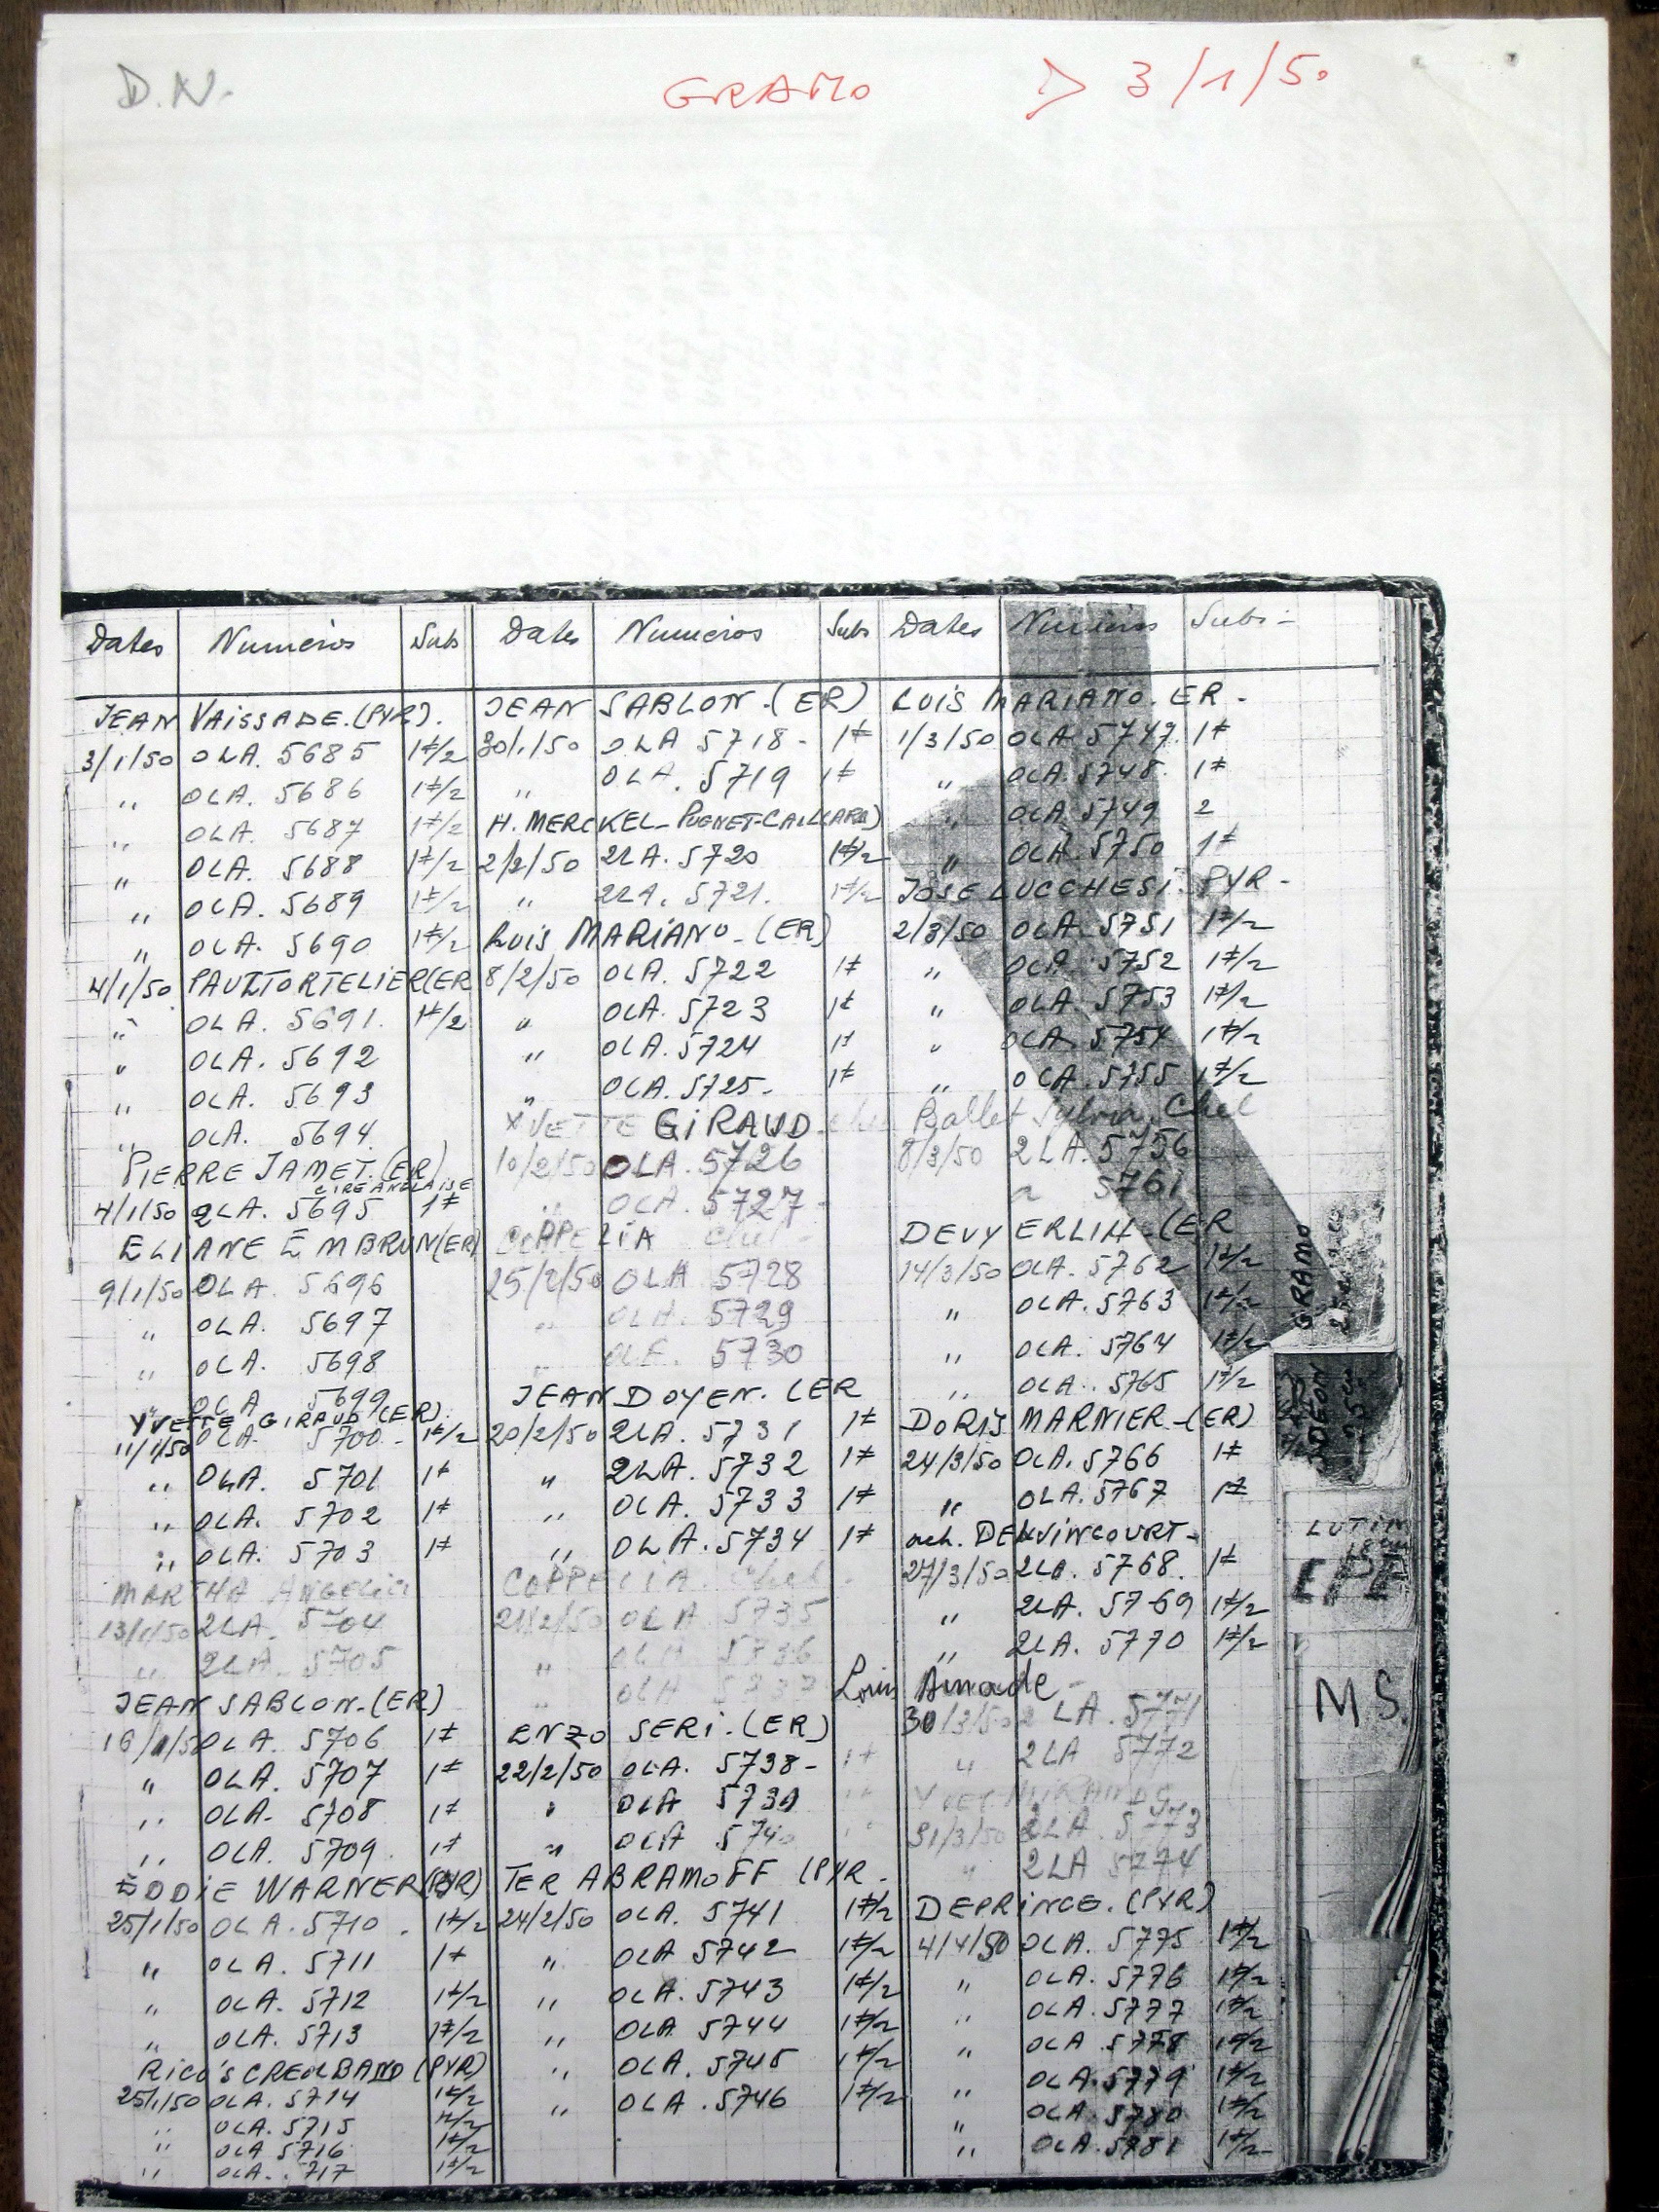 D.N.
GRAMO
3/1/50
Dates Numéros Subs
JEAN VAISSADE. (PYR).
3/1/50 OLA. 5685 1≠/2
" OLA. 5686 1≠/2
" OLA. 5687 1≠/2
" OLA. 5688 1≠/2
" OLA. 5689 1≠/2
" OLA. 5690 1≠/2
4/1/50 PAUL TORTELIER (ER
" OLA. 5691. 1≠/2
" OLA. 5692
" OLA. 5693
" OLA. 5694.
PIERRE JAMET. (ER)
CIRE ANGLAISE
4/1/50 2LA. 5695 1≠
ELIANE EMBRUN (ER)
9/1/50 OLA. 5696
" OLA. 5697
" OLA. 5698
" OLA 5699
YVETTE GIRAUD (ER)
11/1/50 OLA. 5700 - 1≠/2
" OLA. 5701 1≠
" OLA. 5702 1≠
" OLA. 5703 1≠
MARTHA ANGELICI
13/1/50 2LA. 5704
" 2LA. 5705
JEAN SABLON. (ER)
16/1/50 OLA. 5706 1≠
" OLA. 5707 1≠
" OLA. 5708 1≠
" OLA. 5709. 1≠
EDDIE WARNER (PYR)
25/1/50 OLA. 5710. 1≠/2
" OLA. 5711 1≠
" OLA. 5712 1≠/2
" OLA. 5713 1≠/2
RICO'S CREOL BAND (PYR)
25/1/50 OLA. 5714 1≠/2
" OLA. 5715 1≠/2
" OLA 5716 1≠/2
" OLA. 717 1≠/2
Dates Numéros Subs
JEAN SABLON. (ER)
30/1/50 OLA 5718 - 1≠
" OLA. 5719 1≠
H. MERCKEL - PUGNET-CAILLARD)
2/2/50 2LA. 5720 1≠/2
" 2LA. 5721. 1≠/2
LUIS MARIANO - (ER)
8/2/50 OLA. 5722 1≠
" OLA. 5723 1≠
" OLA. 5724 1≠
" OLA. 5725. 1≠
YVETTE GIRAUD
10/2/50 OLA. 5726
" OLA. 5727 -
COPPELIA Chel -
25/2/50 OLA 5728
" OLA. 5729
" OLA. 5730
JEAN DOYEN. (ER
20/2/50 2LA. 5731 1≠
" 2LA. 5732 1≠
" OLA. 5733 1≠
" OLA. 5734 1≠
COPPELIA. Chel -
21/2/50 OLA 5735
" OLA 5736
" OLA 5737
ENZO SERI. (ER)
22/2/50 OLA. 5738 - 1≠
" OLA 5739 "
" OLA 5740 "
TER ABRAMOFF (PYR.
24/2/50 OLA. 5741 1≠/2
" OLA 5742 1≠/2
" OLA. 5743 1≠/2
" OLA 5744 1≠/2
" OLA. 5745 1≠/2
" OLA. 5746 1≠/2
Dates Numéros Subs -
LUIS MARIANO. ER -
1/3/50 OLA 5747. 1≠
" OLA. 5748. 1≠
" OLA 5749 2
" OLA. 5750 1≠
JOSE LUCCHESI. PYR -
2/3/50 OLA. 5751 1≠/2
" OLA. 5752 1≠/2
" OLA. 5753 1≠/2
" OLA. 5754 1≠/2
" OLA. 5755 1≠/2
Ballet Sylvia. Chel
8/3/50 2LA. 5756
a 5761
DEVY ERLIH - (ER
14/3/50 OLA. 5762 1≠/2
" OLA. 5763 1≠/2
" OLA. 5764 1≠/2
" OLA. 5765 1≠/2
DORIS MARNIER - (ER)
24/3/50 OLA. 5766 1≠
" OLA. 5767 1≠
och. DELVINCOURT -
27/3/50 2LA. 5768. 1≠
" 2LA. 5769 1≠/2
" 2LA. 5770 1≠/2
Louis Amade -
30/3/50 2LA. 5771
" 2LA 5772
31/3/50 2LA. 5773
" 2LA 5774
DEPRINCE. (PYR)
4/4/50 OLA. 5775 1≠/2
" OLA. 5776 1≠/2
" OLA. 5777 1≠/2
" OLA 5778 1≠/2
" OLA. 5779 1≠/2
" OLA 5780 1≠/2
" OLA. 5781 1≠/2
GRAMO
ODEON
25 cm
LUTIN
MS.